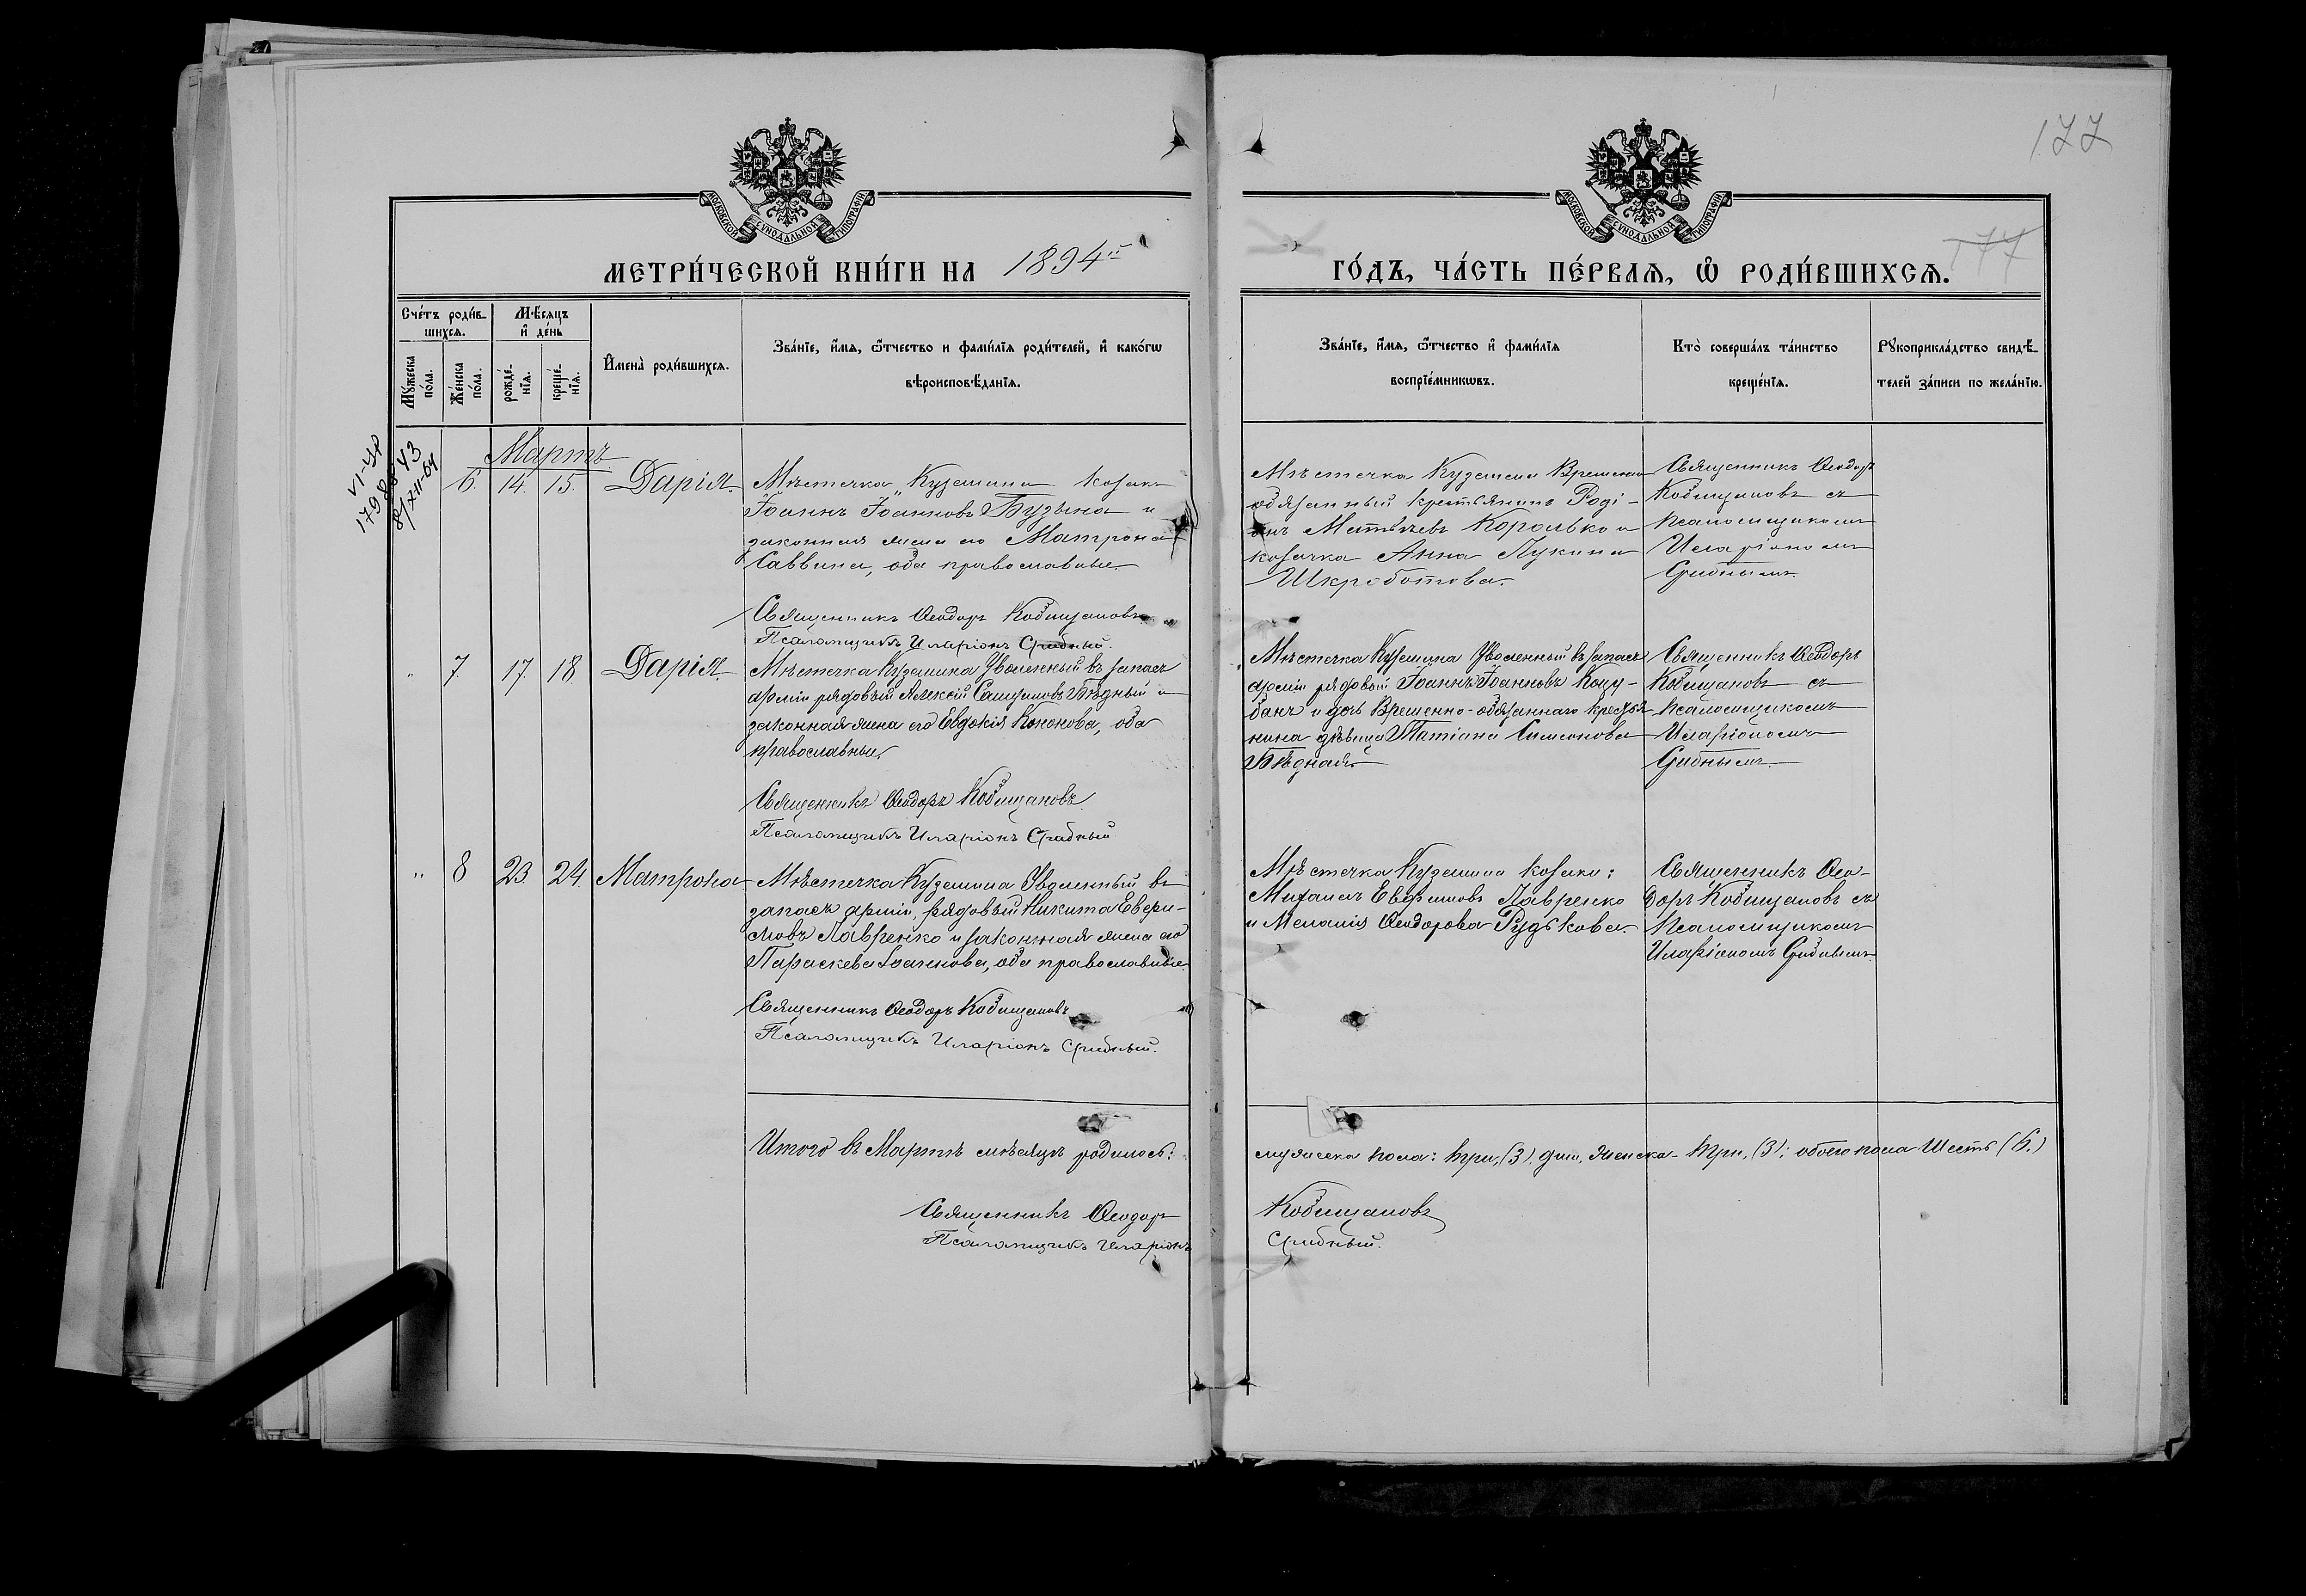 177
МОСКОВСКОЙ СѴНОДАЛЬНОЙ ТИПОГРАФІИ
МОСКОВСКОЙ СѴНОДАЛЬНОЙ ТИПОГРАФІИ
177
МЕТРИ́ЧЕСКОЙ КНИ́ГИ НА 1894й
ГО́ДЪ, ЧА́СТЬ ПЕ́РВАѦ, Ѿ РОДИ́ВШИХСѦ.
Сче́тъ роди́в-
шихсѧ.
Мꙋ́жеска
по́ла.
Же́нска
по́ла.
Мѣ́сѧцъ
и҆ де́нь
рожде́-
нїѧ.
креще́-
нїѧ.
И҆мена̀ роди́вшихсѧ.
Зва́нїе, и҆́мѧ, ѻ҆́тчество и фами́лїѧ роди́телей, и҆ како́гѡ
вѣроисповѣ́данїѧ.
Зва́нїе, и҆́мѧ, ѻ҆́тчество и҆ фами́лїѧ
воспрїе́мникѡвъ.
Кто̀ соверша́лъ та́инство
креще́нїѧ.
Рꙋкоприкла́дство свидѣ́-
телей за́писи по жела́нїю.
VI-УР
8/XII-64
Мартъ.
6. 14. 15. Дарія.
Мѣстечка Куземина козакъ
Іоаннъ Іоанновъ Бузына и
законная жена его Матрона
Саввина, оба православные.
Священникъ Ѳеодоръ Кобищановъ
Псаломщикъ Иларіонъ Срибный.
Мѣстечка Куземина Временно
обязанный крестьянинъ Роді-
онъ Матѳѣевъ Королько и
козачка Анна Лукина
Шкроботова.
Священникъ Ѳеодоръ
Кобищановъ съ
псаломщикомъ
Иларіономъ
Срибнымъ.
" 7. 17. 18 Дарія.
Мѣстечка Куземина Уволенный въ запасъ
арміи рядовый Алексій Бѣдный и
законная жена его Евдокія Кононова, оба
православные.
Священникъ Ѳеодоръ Кобищановъ
Псаломщикъ Иларіонъ Срибный
Мѣстечка Куземина Уволенный въ запасъ
арміи рядовый Іоаннъ Іоанновъ Коцу-
банъ и дочь Временно-обязаннаго крестья-
нина дѣвица Татіана Симеонова
Бѣдная.
Священникъ Ѳеодоръ
Кобищановъ съ
псаломщикомъ
Иларіономъ
Срибнымъ.
" 8 23. 24. Матрона
Мѣстечка Куземина Уволенный въ
запасъ арміи, рядовый Никита Евфи-
мовъ Лавренко и законная жена его
Параскева Іоаннова, оба православные.
Священникъ Ѳеодоръ Кобищановъ
Псаломщикъ Иларіонъ Срибный.
Мѣстечка Куземина козаки:
Михаилъ Евфимовъ Лавренко
и Меланія Ѳеодорова Рудькова.
Священникъ Ѳео-
доръ Кобищановъ съ
псаломщикомъ
Иларіономъ Срибнымъ.
Итого въ Мартѣ мѣсяцѣ родилось:
мужеска пола: три, (3) женска- три, (3); обоего пола шесть (6.)
Священникъ Ѳеодоръ Кобищановъ
Псаломщикъ Иларіонъ Срибный.